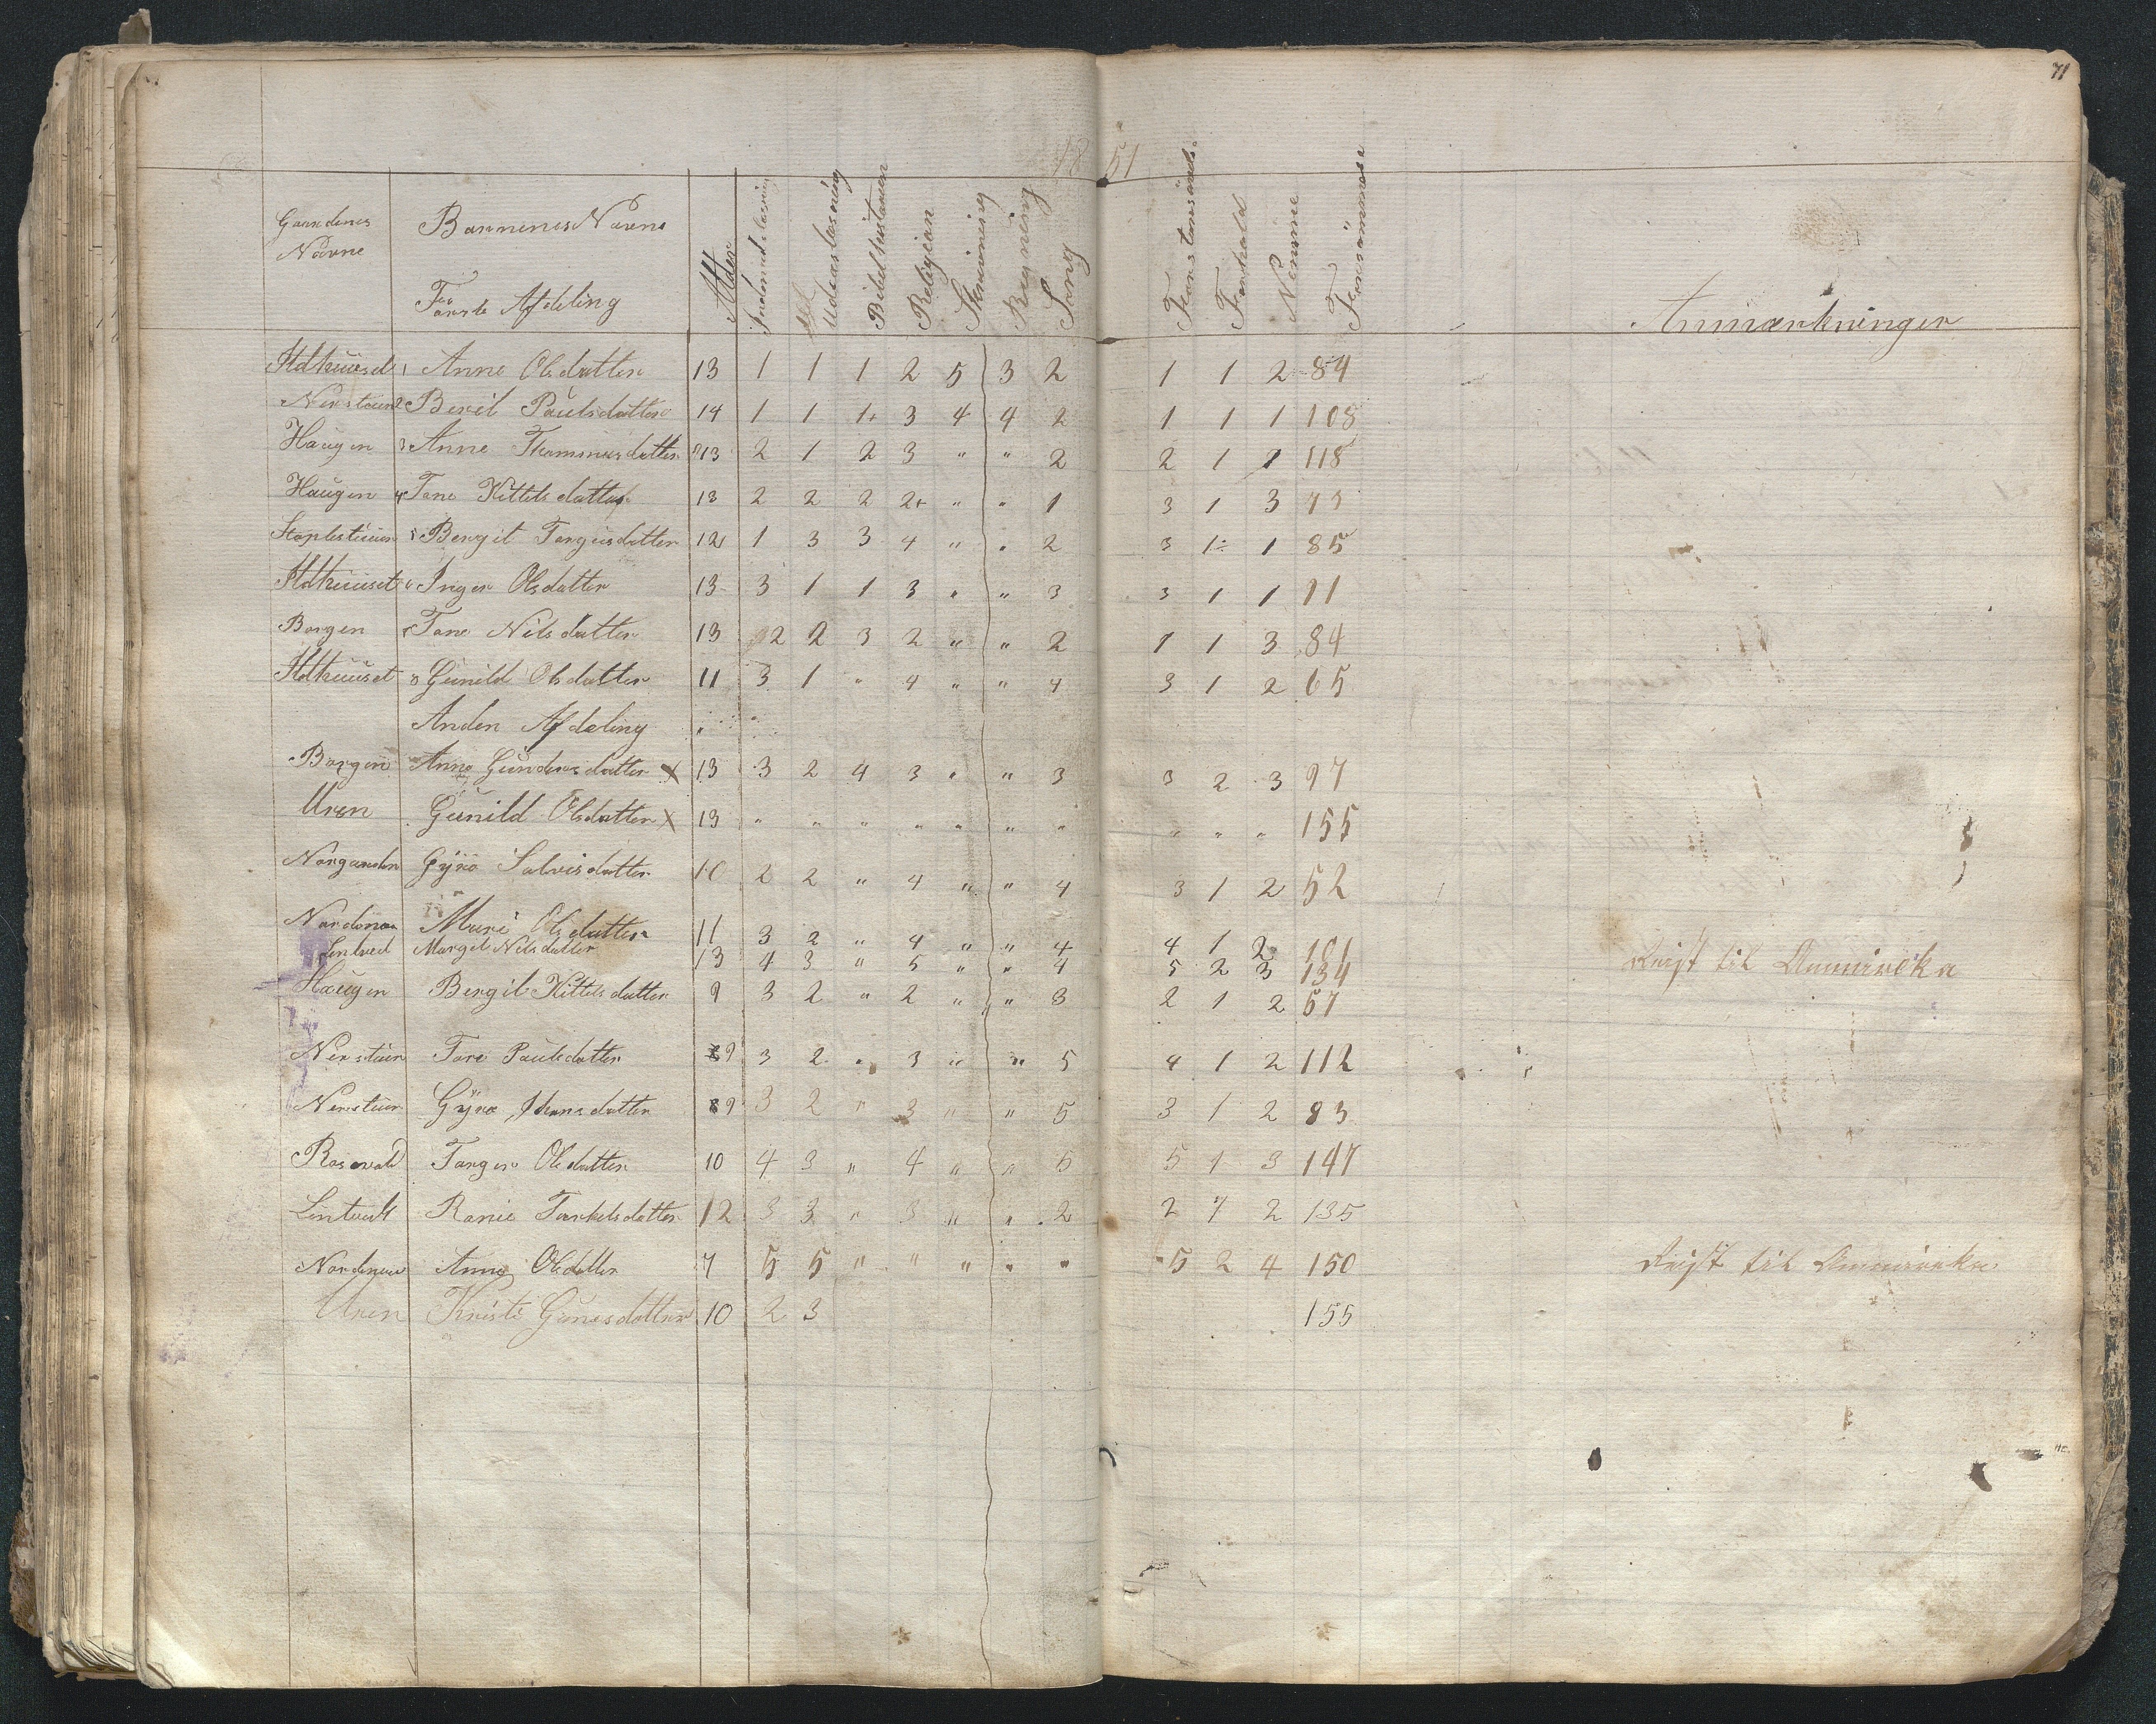 71
18 51
Gaardenes Navne Barnenes Navne Første Afdeling Alder Indenadslæsning Udenaslæsning Bibelhistorien Religion Skrivning Regning Sang Forstand Forhold Nemme Forsömmelse Anmærkninger
1 Anne Olsdatter 13 1 1 1 2 5 3 2 1 1 2 84
Nerstuen 2 Berit Paulsdatter 14 1 1 1+ 3 4 4 2 1 1 1 108
Haugen 3 Anne 13 2 1 2 3 " " 2 2 1 1 118
Haugen 4 Tone Kittilsdatter 13 2 2 2 2+ " " 1 3 1 3
Bergit Torgusdatter 12 1 3 3 4 " " 2 3 1÷ 1 85
Inger Olsdatter 13 3 1 1 3 " " 3 3 1 1
Borgen Tone Nilsdatter 13 2 2 3 2 " " 2 1 1 3 84
8 Gunild Olsdatter 11 3 1 " 4 " " 4 3 1 2 65
Anden Afdeling "
Borgen Anne Gundersdatter X 13 3 2 4 3 " " 3 3 2 3 97
Uren Gunild Olsdatter X 13 " " " " " " " " " " 155
Gyro Salvisdatter 10 2 2 " 4 " " 4 3 1 2 52
Mari Olsdatter 11 3 2 " 4 " " 4 4 1 2 101
Lintved Margit Nilsdatter 13 4 3 " 5 " " 4 5 2 3 134 Reist til Amerika
Haugen Bergit Kittilsdatter 9 3 2 " 2 " " 3 2 1 2 57
Nerstuen Tore Paulsdatter 9 3 2 " 3 " " 5 4 1 2 112
Nerstuen Gyro Hansdatter 9 3 2 " 3 " " 5 3 1 2 83
Rosevold Torger Olsdatter 10 4 3 " 4 " " 5 5 1 3 147
Lintvedt Ronie Torkelsdatter 12 3 3 " 3 " " 2 2 1 2 135
Anne Olsdatter 7 5 5 " " " " " 5 2 4 150 Reist til Amerika
Uren Kristi Gunesdatter 10 2 3 155